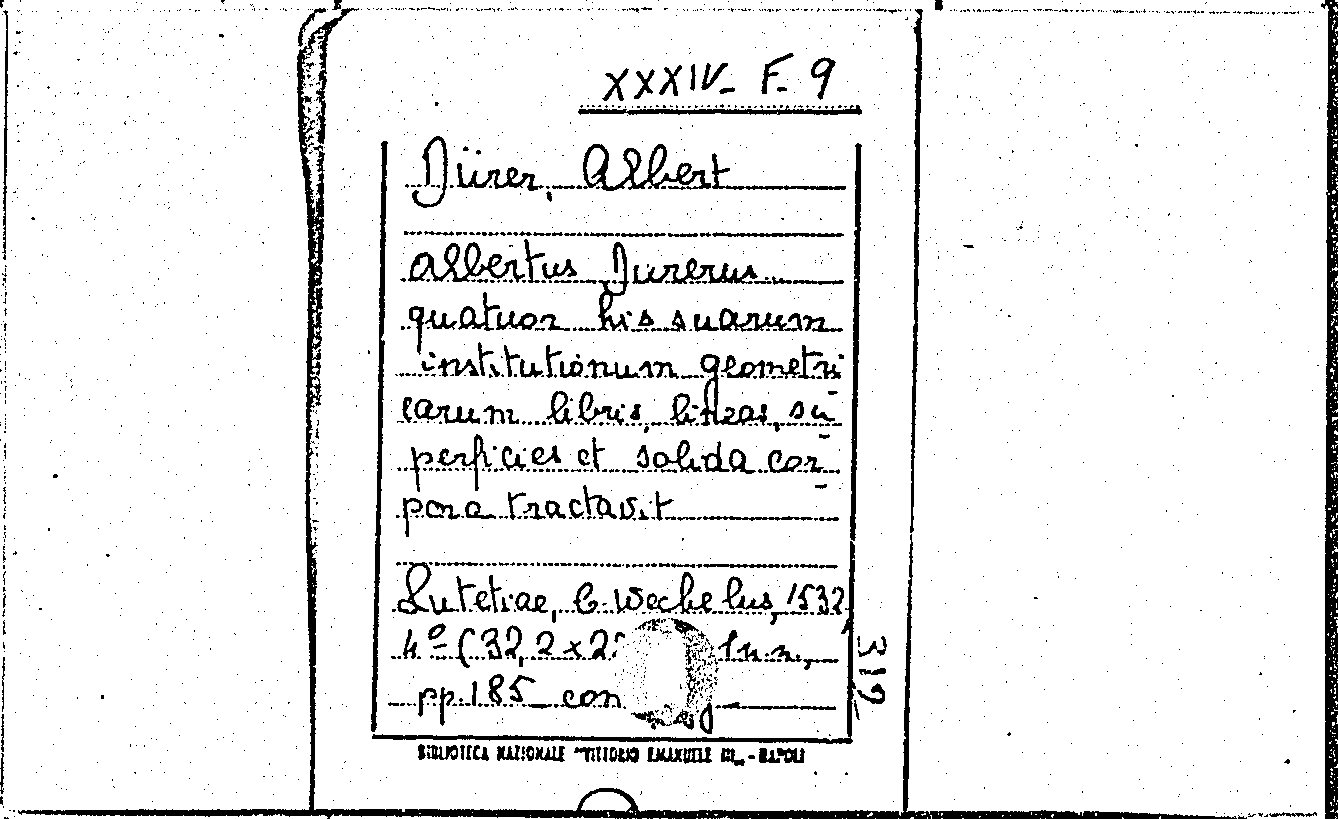 XXXIV- F- 9
Dürer, Albert
Albertus Durerus
quatuor his suarum
institutionum geometri
carum libris, lineas, su-
perficies et solida cor-
pora tractavit
Lutetiae, C. Wechelus, 1532,
4º (32,2 x 2
pp. 185 con
319
BIBLIOTECA NAZIONALE "VITTORIO EMANUELE III„ - NAPOLI